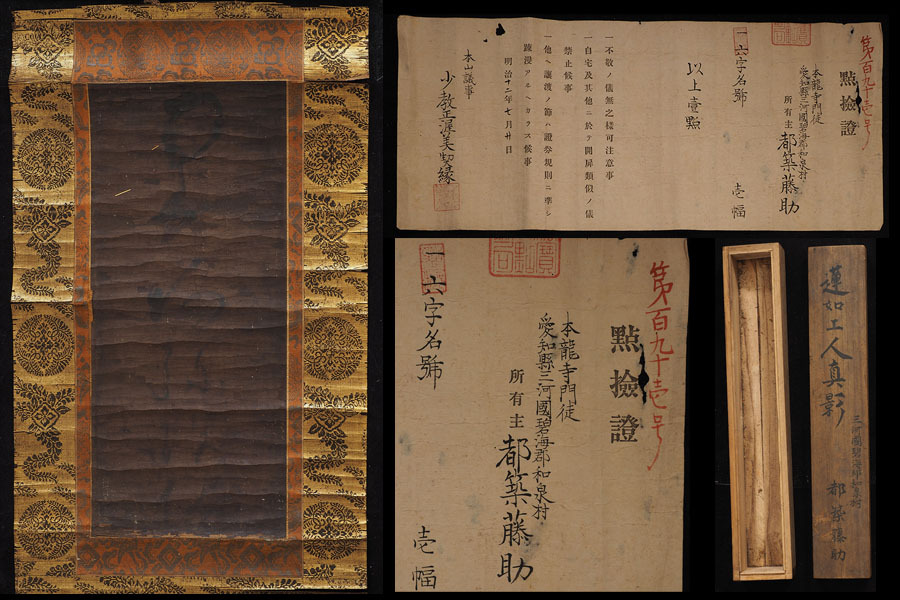 第百九十壱号
點檢證
本龍寺門徒
愛知縣三河國碧海郡和泉村
所有主 都築藤助
一六字名號 壱幅
以上壹點
一不敬ノ儀無之樣可注意事
一自宅及其他ニ於テ開扉類似ノ儀
禁止候事
一他ヘ讓渡ノ節ハ證券規則ニ準シ
踈漫アルヘカラス候事
明治十二年七月廿日
本山議事
少教正渥美契縁
第百九十壱号
點檢證
本龍寺門徒
愛知縣三河國碧海郡和泉村
所有主 都築藤助
一六字名號 壱幅
蓮如上人真影
三河國碧海郡和泉村
都築藤助